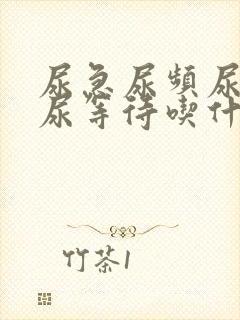 尿急尿频尿
尿等待喫什
竹茶1